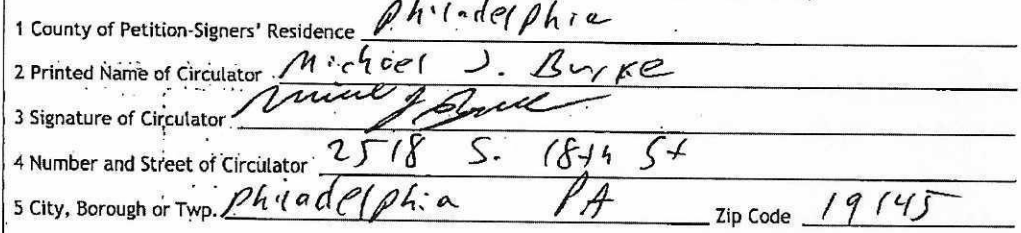 1 County of Petition-Signers' Residence Philadelphia
2 Printed Name of Circulator Michael J. Burke
3 Signature of Circulator
4 Number and Street of Circulator 2518 S. 18th St
5 City, Borough or Twp. Philadelphia PA Zip Code 19145